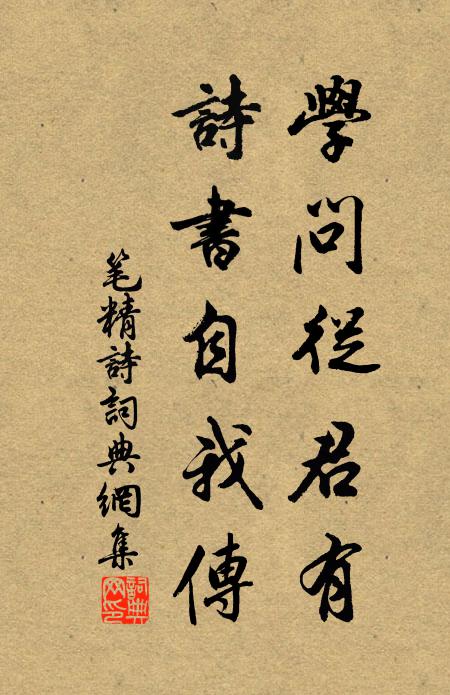 學問從君有
詩書自我傳
笔精詩詞典網集
詞典网印